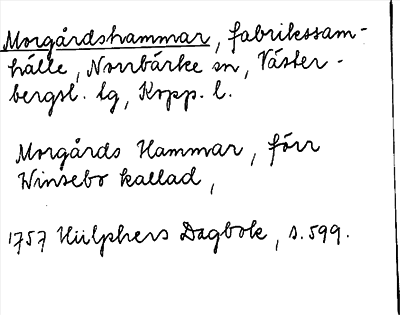 Morgårdshammar, fabrikssam-
hälle, Norrbärke sn, Väster-
bergsl. tg, Kopp. l.
Morgårds Hammar, förr
Winsebo kallad,
1757 Hülphers Dagbok, s. 599.